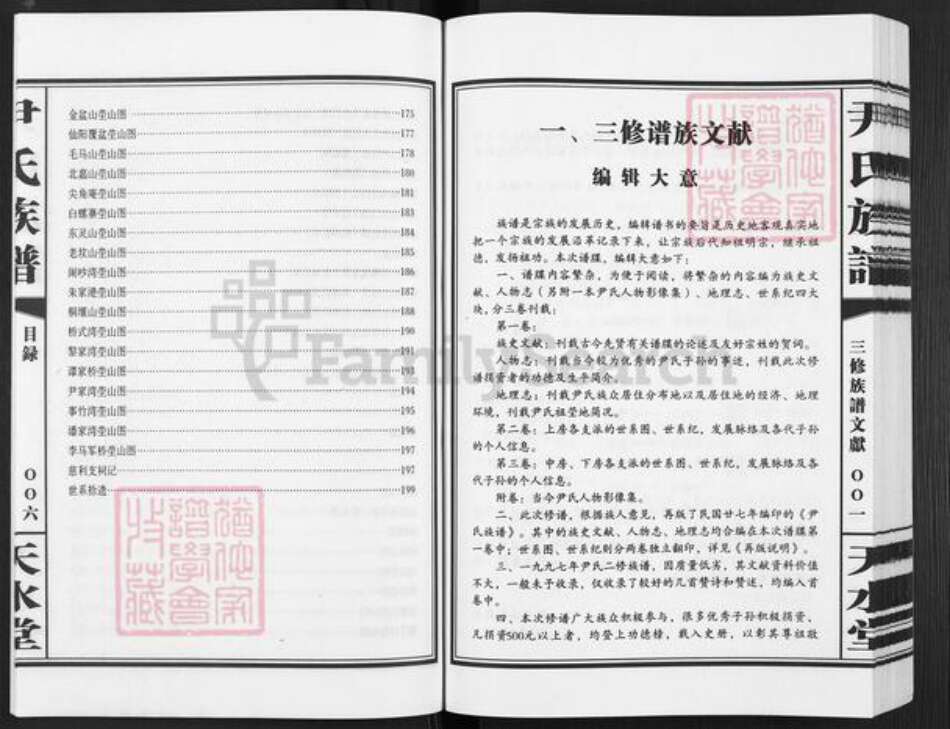 尹氏族谱
目録
〇〇六
天水堂
金盆山茔山图 175
仙阳覆盆茔山图 177
毛马山茔山图 178
北嘉山茔山图 180
尖角庵茔山图 181
白螺寨茔山图 183
东灵山茔山图 184
老坟山茔山图 185
闹吵湾茔山图 186
朱家港茔山图 187
桐堰山茔山图 188
桥式湾茔山图 190
黎家湾茔山图 191
谭家桥茔山图 193
尹家湾茔山图 194
事竹湾茔山图 195
潘家湾茔山图 196
李马军桥茔山图 197
慈利支祠记 197
世系拾遗 199
猶他家
譜學會
收藏
FamilySearch
一、三修谱族文献
编辑大意
族谱是宗族的发展历史，编辑谱书的要旨是历史地客观真实地
把一个宗族的发展沿革记录下来，让宗族后代知祖明宗，继承祖
德，发扬祖功。本次谱牒，编辑大意如下：
一、谱牒内容繁杂，为便于阅读，将繁杂的内容编为族史文
献、人物志（另附一本尹氏人物影像集）、地理志、世系纪四大
块，分三卷刊载：
第一卷：
族史文献：刊载古今先贤有关谱牒的论述及友好宗姓的贺词。
人物志：刊载当今较为优秀的尹氏子孙的事迹，刊载此次修
谱捐资者的功德及生平简介。
地理志：刊载尹氏族众居住分布地以及居住地的经济、地理
环境，刊载尹氏祖茔地简况。
第二卷：上房各支派的世系图、世系纪，发展脉络及各代子孙
的个人信息。
第三卷：中房、下房各支派的世系图、世系纪，发展脉络及各
代子孙的个人信息。
附卷：当今尹氏人物影像集。
二、此次修谱，根据族人意见，再版了民国廿七年编印的《尹
氏族谱》。其中的族史文献、人物志、地理志均合编在本次谱牒第
一卷中；世系图、世系纪则分两卷独立翻印，详见《再版说明》。
三、一九九七年尹氏二修族谱，因质量低劣，其文献资料价值
不大，一般未予收录，仅收录了较好的几首赞诗和赞述，均编入首
卷中。
四、本次修谱广大族众积极参与，很多优秀子孙积极捐资，
凡捐资500元以上者，均登上功德榜，载入史册，以彰其尊祖敬
猶他家
譜學會
收藏
尹氏族譜
三修族譜文獻
〇〇一
天水堂